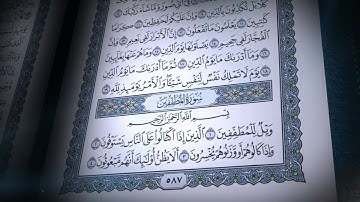 كَلَّا بَلْ تُكَذِّبُونَ بِالدِّينِ ۝٩ وَإِنَّ عَلَيْكُمْ لَحَافِظِينَ ۝١٠ كِرَامًا
كَاتِبِينَ ۝١١ يَعْلَمُونَ مَا تَفْعَلُونَ ۝١٢ إِنَّ الْأَبْرَارَ لَفِي نَعِيمٍ ۝١٣
وَإِنَّ الْفُجَّارَ لَفِي جَحِيمٍ ۝١٤ يَصْلَوْنَهَا يَوْمَ الدِّينِ ۝١٥ وَمَا هُمْ عَنْهَا بِغَائِبِينَ
۝١٦ وَمَا أَدْرَاكَ مَا يَوْمُ الدِّينِ ۝١٧ ثُمَّ مَا أَدْرَاكَ مَا يَوْمُ الدِّينِ
۝١٨ يَوْمَ لَا تَمْلِكُ نَفْسٌ لِنَفْسٍ شَيْئًا وَالْأَمْرُ يَوْمَئِذٍ لِلَّهِ ۝١٩
سُورَةُ الْمُطَفِّفِينَ
بِسْمِ اللَّهِ الرَّحْمَٰنِ الرَّحِيمِ
وَيْلٌ لِلْمُطَفِّفِينَ ۝١ الَّذِينَ إِذَا اكْتَالُوا عَلَى النَّاسِ يَسْتَوْفُونَ ۝٢
وَإِذَا كَالُوهُمْ أَوْ وَزَنُوهُمْ يُخْسِرُونَ ۝٣ أَلَا يَظُنُّ أُولَٰئِكَ أَنَّهُمْ مَبْعُوثُونَ ۝٤
٥٨٧